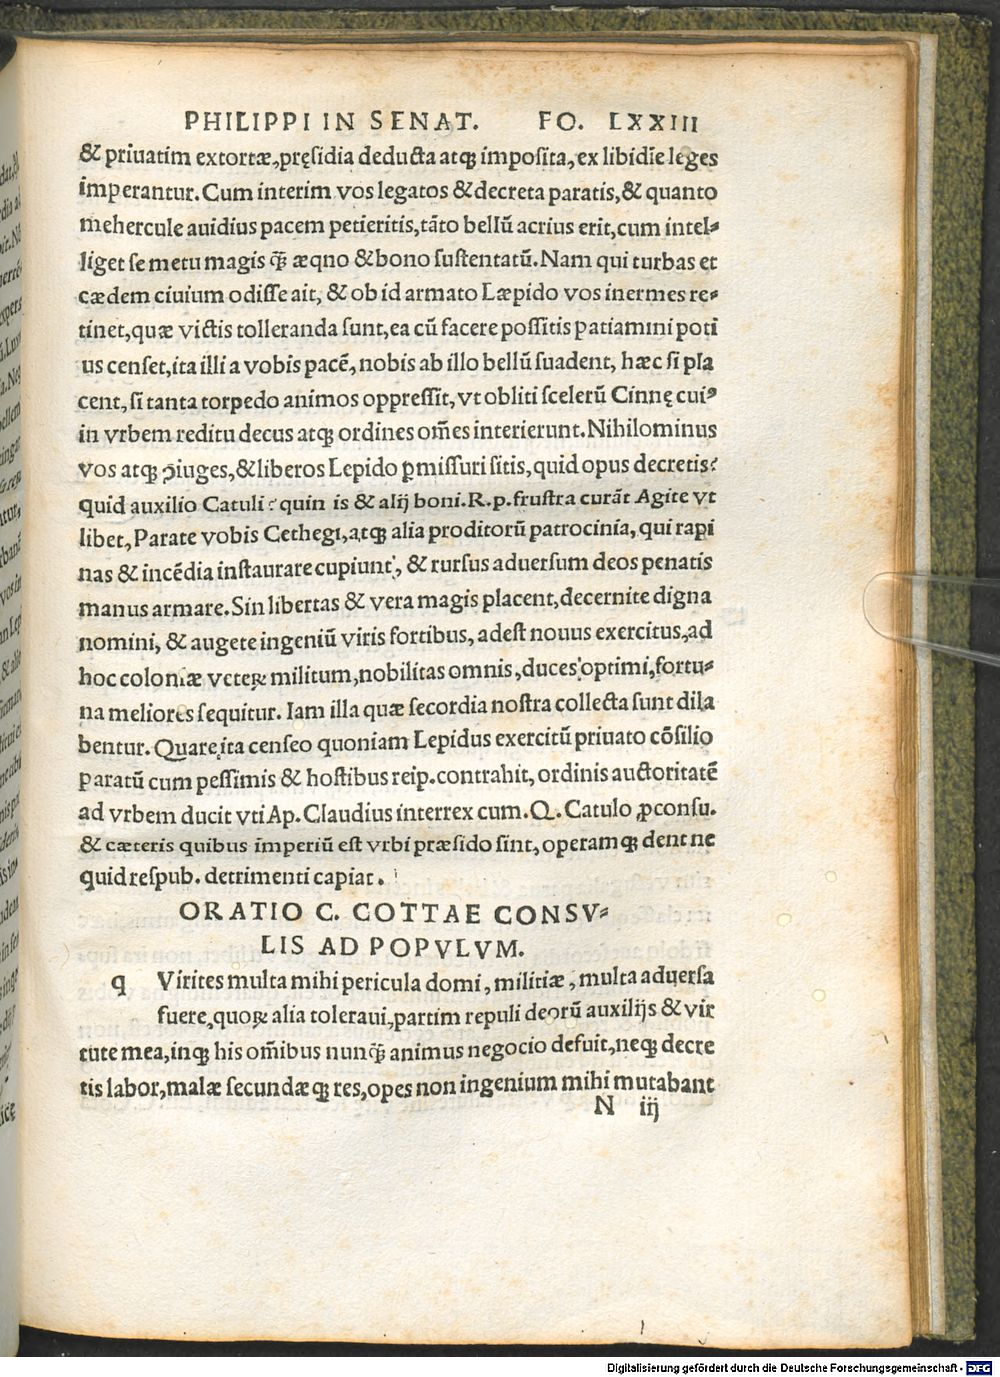 PHILIPPI IN SENAT. FO. LXXIII
& priuatim extortæ, pręsidia deducta atqꝫ imposita, ex libidīe leges
imperantur. Cum interim vos legatos & decreta paratis, & quanto
mehercule auidius pacem petieritis, tāto bellū acrius erit, cum intel-
liget se metu magis q̄ꝫ æqno & bono sustentatū. Nam qui turbas et
cædem ciuium odisse ait, & ob id armato Læpido vos inermes re-
tinet, quæ victis tolleranda sunt, ea cū facere possitis patiamini poti
us censet, ita illi a vobis pacē, nobis ab illo bellū suadent, hæc si pla
cent, si tanta torpedo animos oppressit, vt obliti scelerū Cinnę cuiꝰ
in vrbem reditu decus atqꝫ ordines om̄es interierunt. Nihilominus
vos atqꝫ ꝯiuges, & liberos Lepido ꝑmissuri sitis, quid opus decretis?
quid auxilio Catuli? quin is & alij boni. R. p. frustra curāt Agite vt
libet, Parate vobis Cethegi, atqꝫ alia proditorū patrocinia, qui rapi
nas & incēdia instaurare cupiunt, & rursus aduersum deos penatis
manus armare. Sin libertas & vera magis placent, decernite digna
nomini, & augete ingeniū viris fortibus, adest nouus exercitus, ad
hoc coloniæ veteꝝ militum, nobilitas omnis, duces optimi, fortu-
na meliores sequitur. Iam illa quæ secordia nostra collecta sunt dila
bentur. Quare ita censeo quoniam Lepidus exercitū priuato cōsilio
paratū cum pessimis & hostibus reip. contrahit, ordinis auctoritatē
ad vrbem ducit vti Ap. Claudius interrex cum. Q. Catulo ꝓconsu.
& cæteris quibus imperiū est vrbi præsido sint, operamqꝫ dent ne
quid respub. detrimenti capiat.
ORATIO C. COTTAE CONSV-
LIS AD POPVLVM.
q Virites multa mihi pericula domi, militiæ, multa aduersa
fuere, quoꝝ alia toleraui, partim repuli deorū auxilijs & vir
tute mea, inqꝫ his om̄ibus nunq̄ꝫ animus negocio defuit, neqꝫ decre
tis labor, malæ secundæqꝫ res, opes non ingenium mihi mutabant
N iij
Digitalisierung gefördert durch die Deutsche Forschungsgemeinschaft - DFG